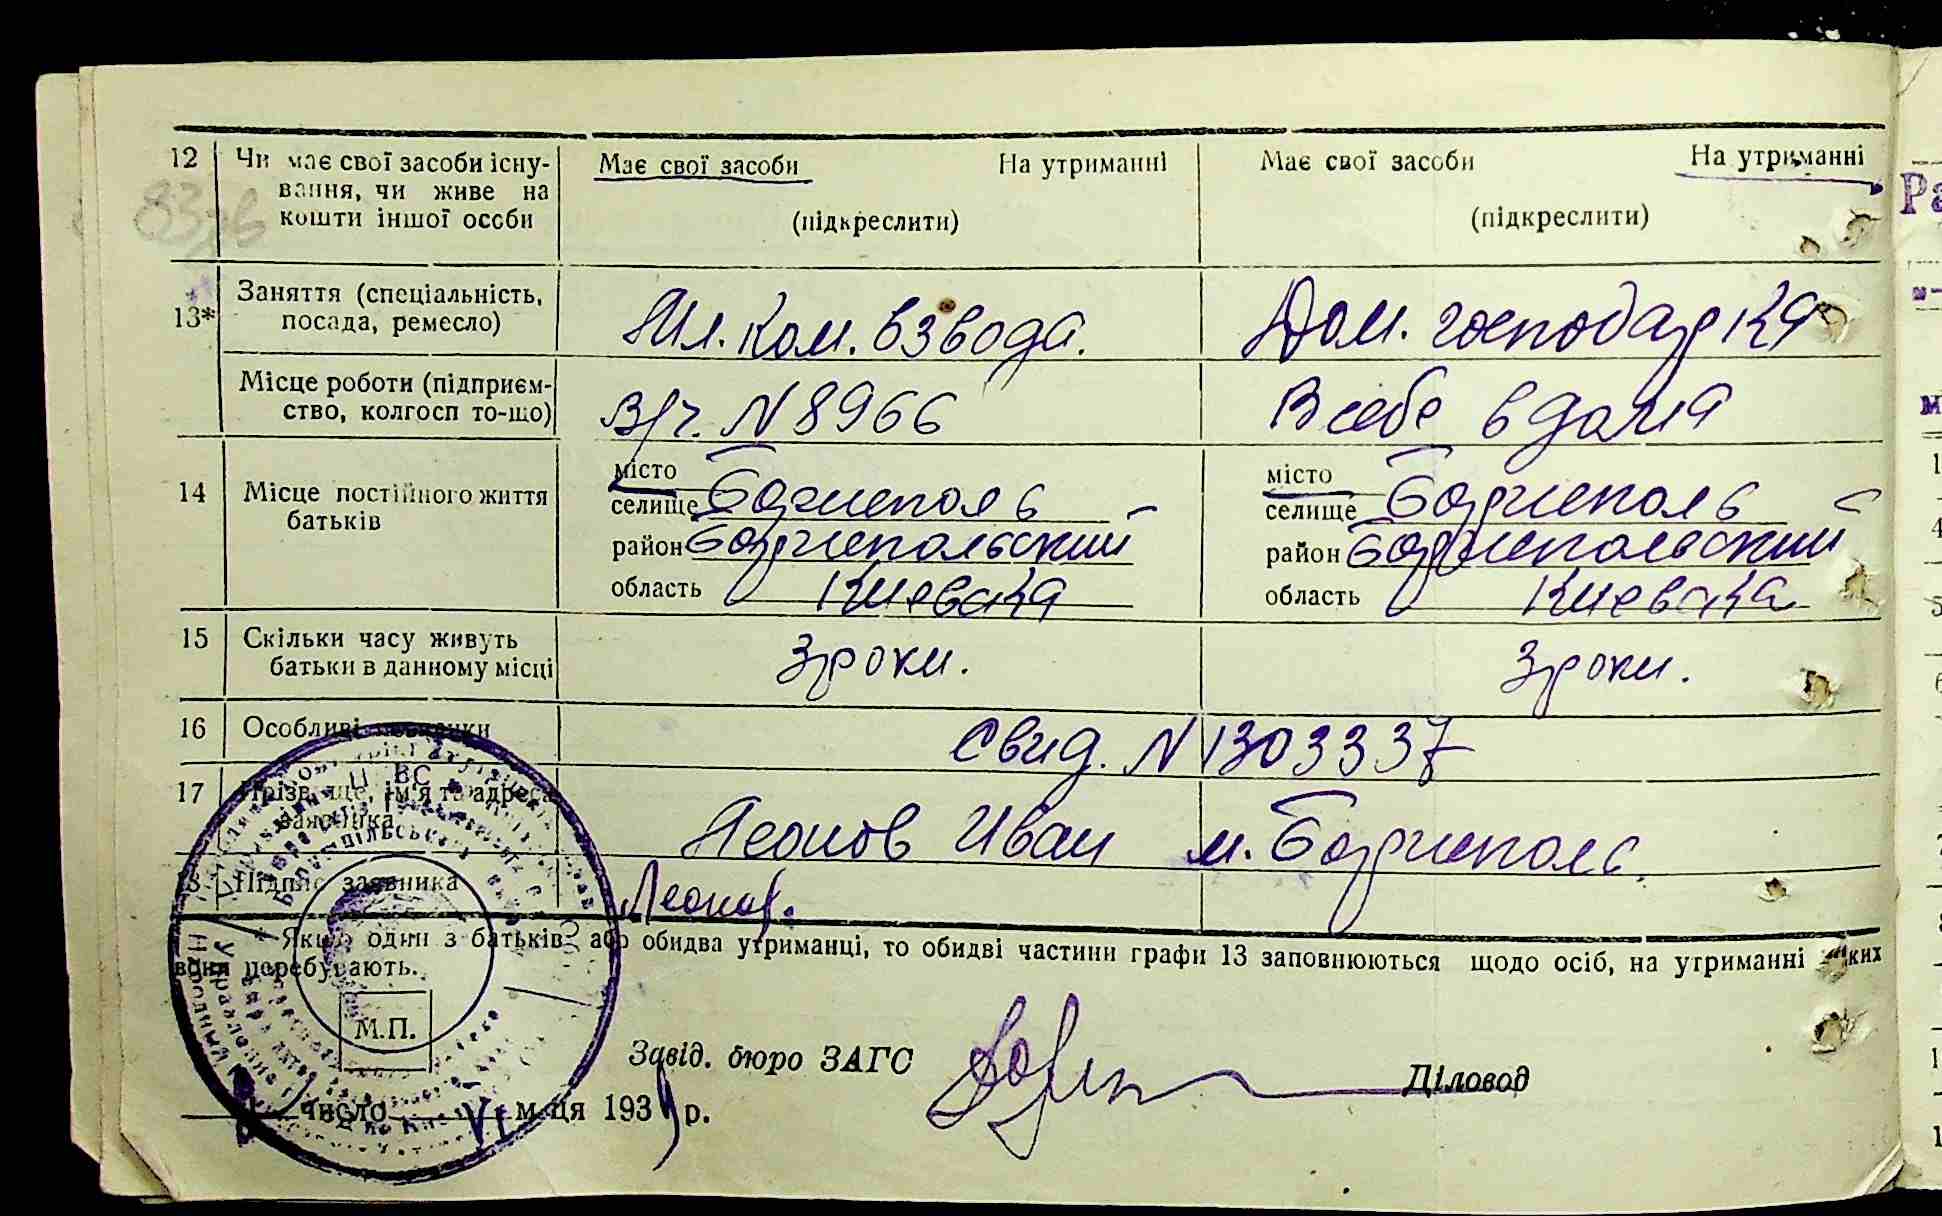 12 Чи має свої засоби існу-
вання, чи живе на
кошти іншої особи
Має свої засоби На утриманні
(підкреслити)
Має свої засоби На утриманні
(підкреслити)
13* Заняття (спеціальність,
посада, ремесло)
Мл. Ком. взвода.
Дом. господарка
Місце роботи (підприєм-
ство, колгосп то-що)
В/ч. N 8966
В себе вдома
14 Місце постійного життя
батьків
місто
селище Борисполь
район Бориспольский
область Киевска
місто
селище Борисполь
район Бориспольский
область Киевска
15 Скільки часу живуть
батьки в данному місці
3 роки.
3 роки.
16 Особливі
Свид. N 1303337
17 Прізвище, ім'я та адреса
заявника
Леонов Иван м. Борисполь.
18 Підпис заявника
Леонов.
* Якщо один з батьків або обидва утриманці, то обидві частини графи 13 заповнюються щодо осіб, на утриманні яких
вони перебувають.
М.П.
Завід. бюро ЗАГС
Діловод
число VI м-ця 1939 р.